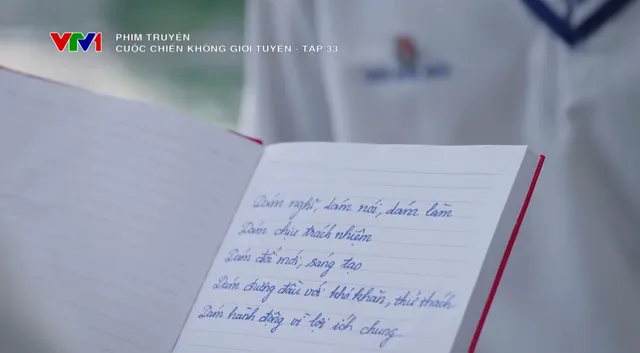 VTV1
PHIM TRUYỆN
CUỘC CHIẾN KHÔNG GIỚI TUYẾN - TẬP 33
Dám nghĩ, dám nói, dám làm
Dám chịu trách nhiệm
Dám đổi mới, sáng tạo
Dám đương đầu với khó khăn, thử thách
Dám hành động vì lợi ích chung